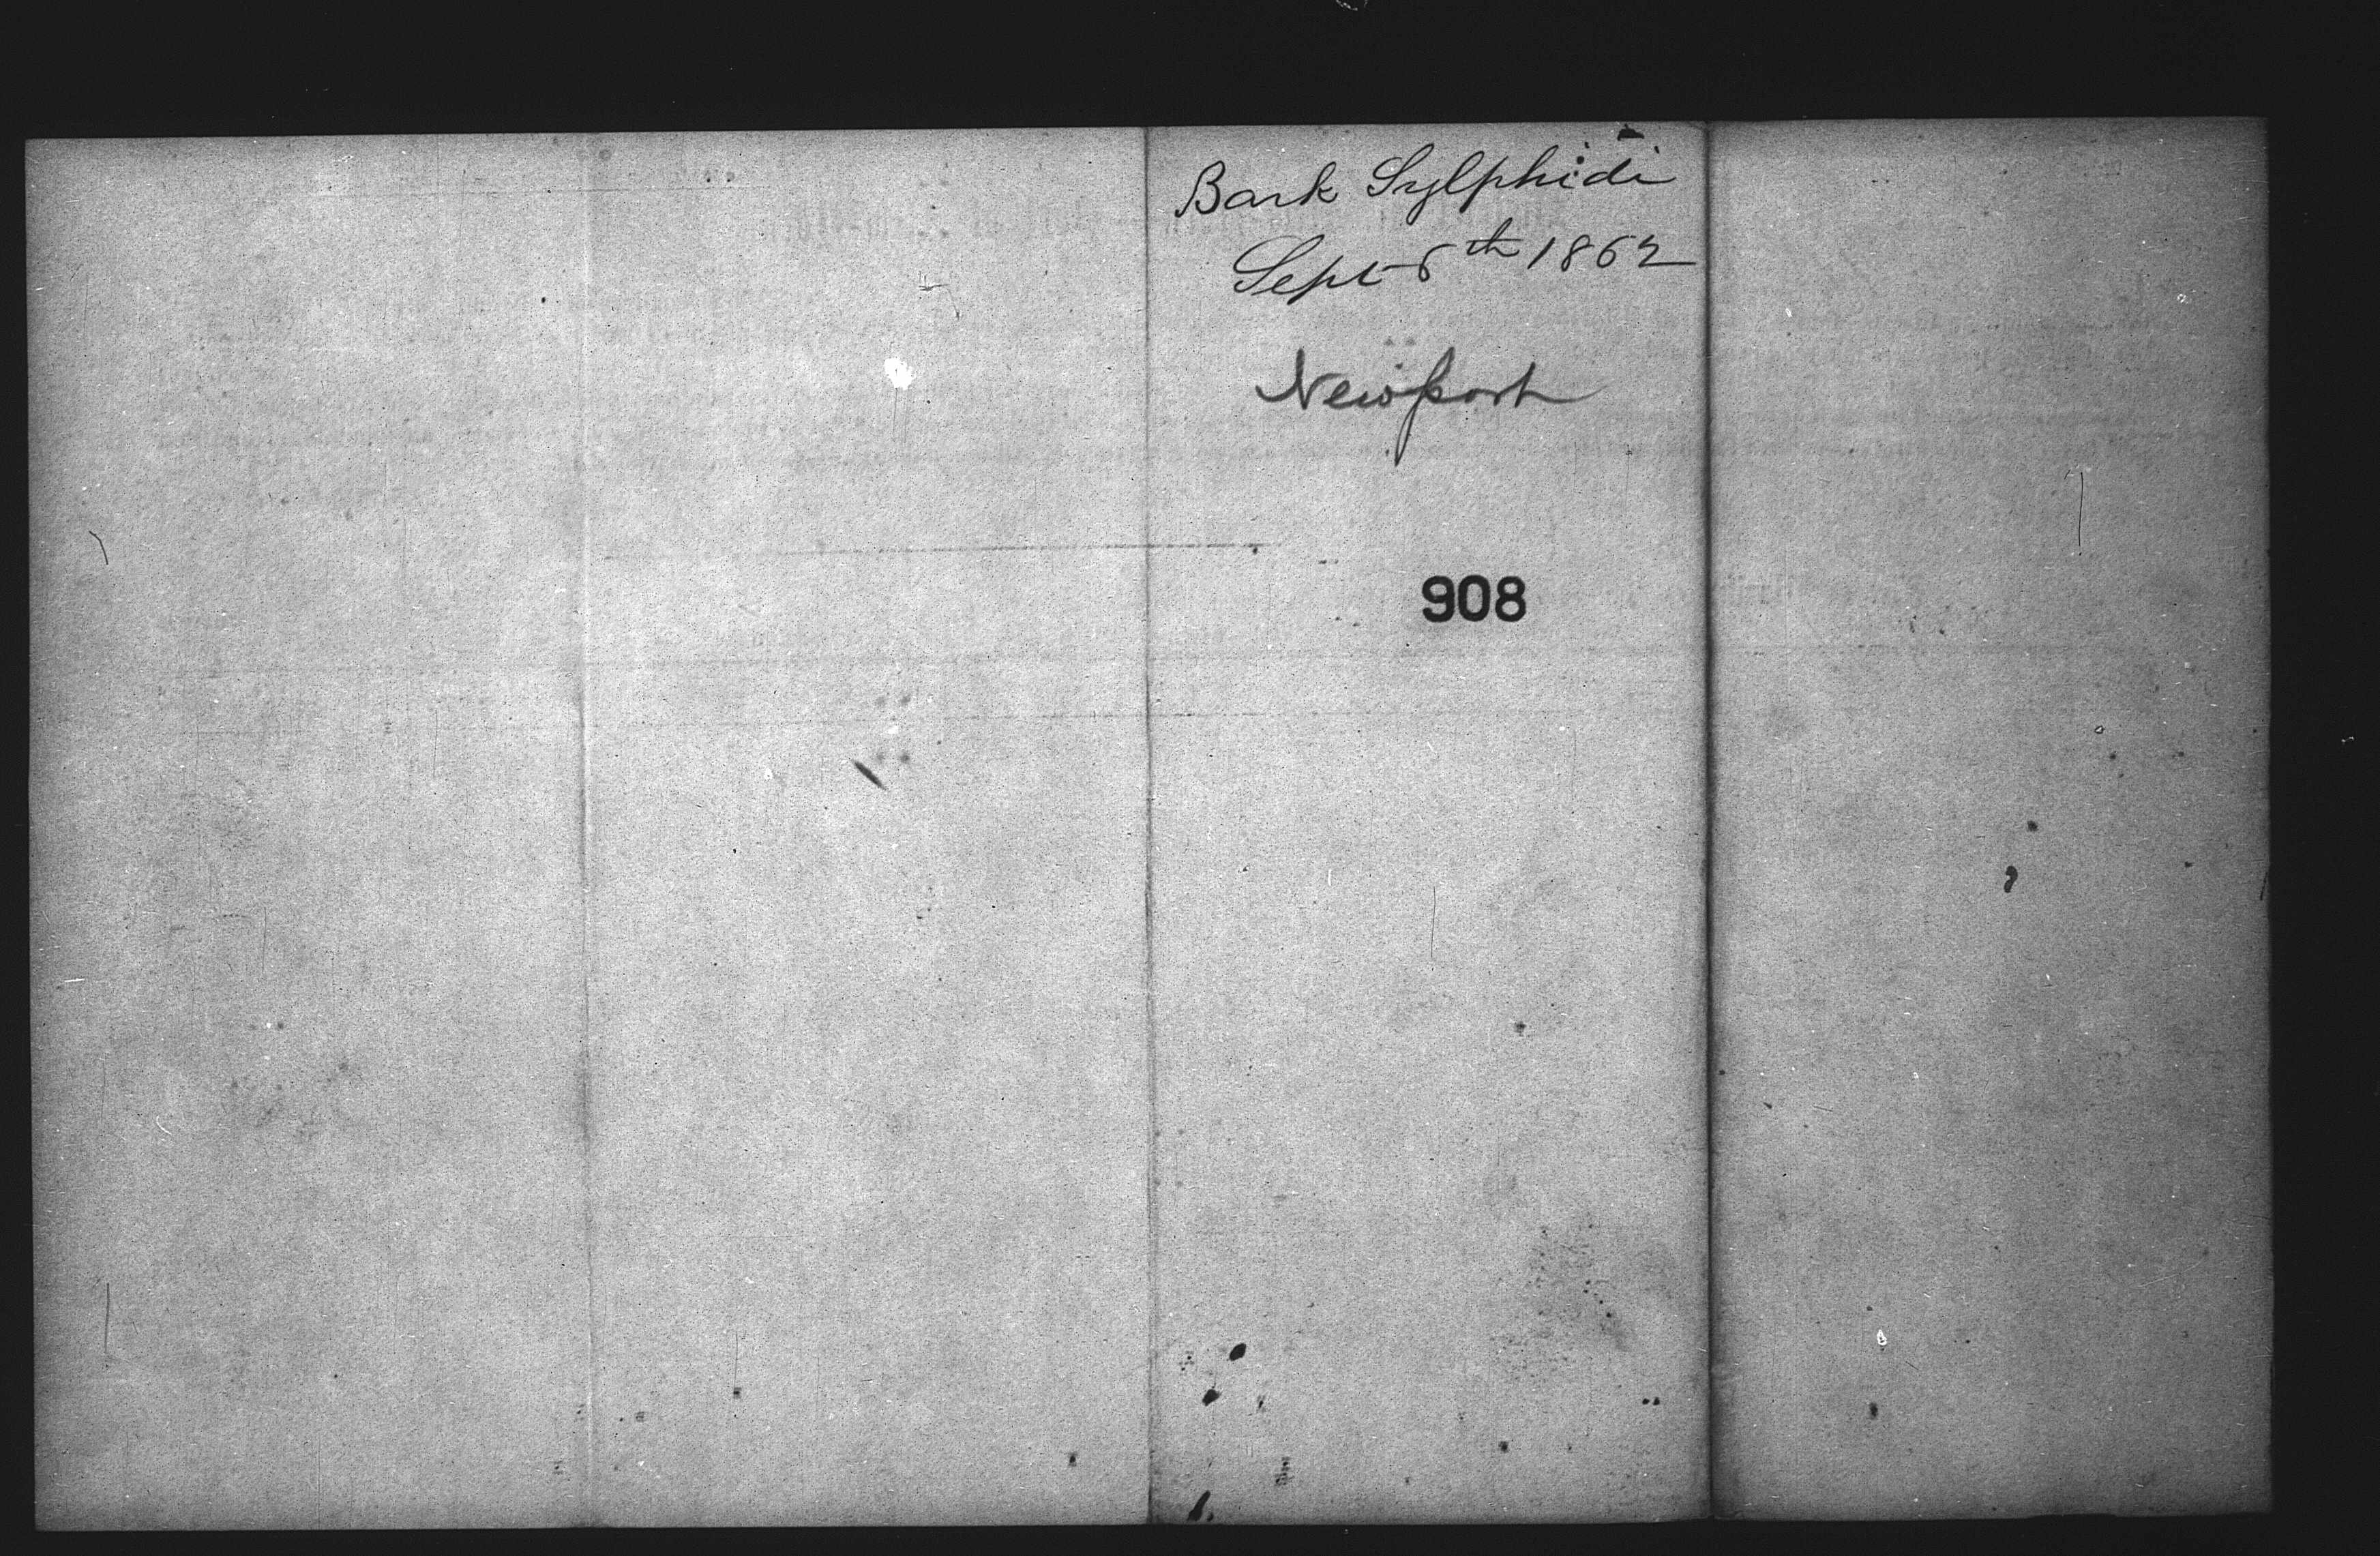 Bark Sylphidi
Sept 6th 1862
Newport
908